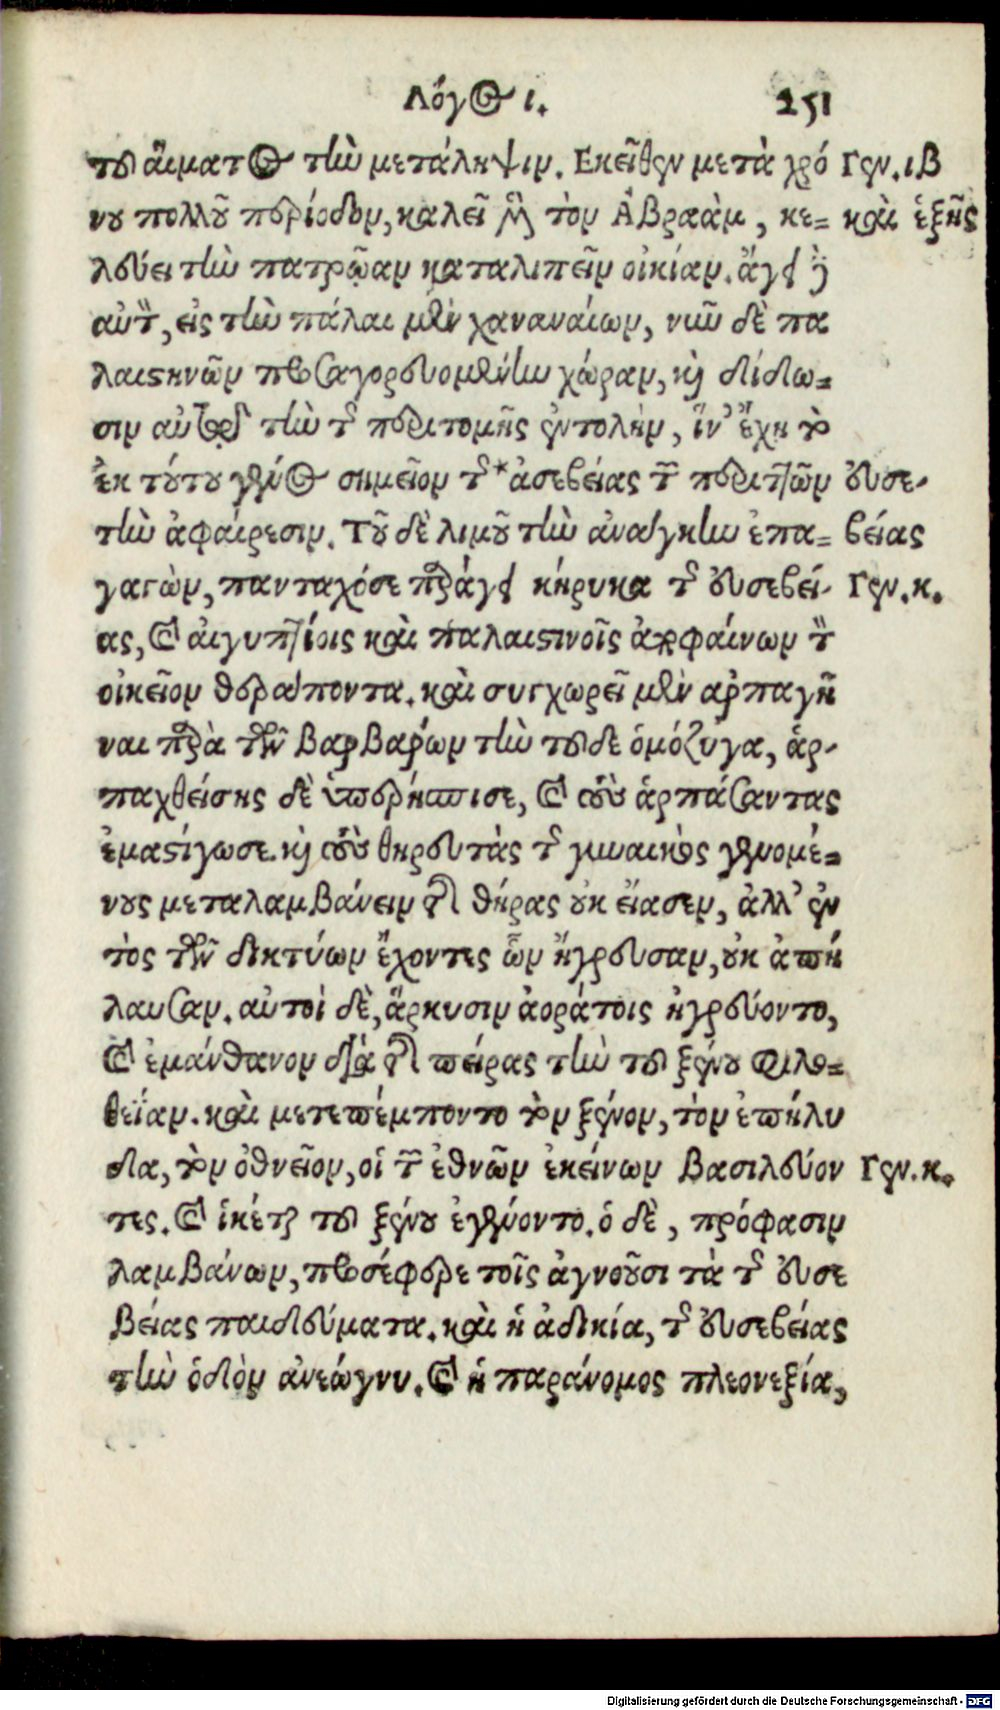 Λόγος ι. 251
τοῦ αἵματος τὴν μετάληψιν. Εκεῖθεν μετὰ χρό Γεν. ιβ
νου πολλοῦ περίοδον, καλεῖ μὲν τὸν Ἀβραὰμ, κε= καὶ ἑξῆς
λεύει τὴν πατρῴαν καταλιπεῖν οἰκίαν. ἄγει δὲ
αὐτὸν, εἰς τὴν πάλαι μὲν χαναναίων, νῦν δὲ πα
λαιστηνῶν προσαγορευομένην χώραν, καὶ δίδω=
σιν αὐτῷ τὴν τῆς περιτομῆς ἐντολὴν, ἵν' ἔχῃ τὸ
ἐκ τούτου γένος σημεῖον τῆς *ἀσεβείας τὴν περιττῶν εὐσε-
τὴν ἀφαίρεσιν. Τοῦ δὲ λιμοῦ τὴν ἀνάγκην ἐπα= βείας
γαγὼν, πανταχόσε παράγει κήρυκα τῆς εὐσεβεί- Γεν. κ.
ας, καὶ αἰγυπτίοις καὶ παλαιστινοῖς ἀποφαίνων τὸν
οἰκεῖον θεράποντα. καὶ συγχωρεῖ μὲν ἁρπαγῆ
ναι παρὰ τῶν βαρβάρων τὴν τοῦδε ὁμόζυγα, ἁρ-
παχθείσης δὲ ὑπερήσπισε, καὶ τοὺς ἁρπάσαντας
ἐμαστίγωσε. καὶ τοὺς θηρευτὰς τῆς γυναικὸς γενομέ=
νους μεταλαμβάνειν τῆς θήρας οὐκ εἴασεν, ἀλλ' ἐν
τὸς τῶν δικτύων ἔχοντες ὧν ἤγρευσαν, οὐκ ἀπή
λαυσαν. αὐτοὶ δὲ, ἄρκυσιν ἀοράτοις ἠγρεύοντο,
καὶ ἐμάνθανον διὰ τῆς πείρας τὴν τοῦ ξένου φιλο=
θεΐαν. καὶ μετεπέμποντο τὸν ξένον, τὸν ἐπήλυ
δα, τὸν ὀθνεῖον, οἱ τῶν ἐθνῶν ἐκείνων βασιλεύον Γεν. κ.
τες. καὶ ἱκέται τοῦ ξένου ἐγένοντο. ὁ δὲ, πρόφασιν
λαμβάνων, προσέφερε τοῖς ἀγνοοῦσι τὰ τῆς εὐσε
βείας παιδεύματα. καὶ ἡ ἀδικία, τῆς εὐσεβείας
τὴν ὁδὸν ἀνεώγνυ. καὶ ἡ παράνομος πλεονεξία,
Digitalisierung gefördert durch die Deutsche Forschungsgemeinschaft - DFG